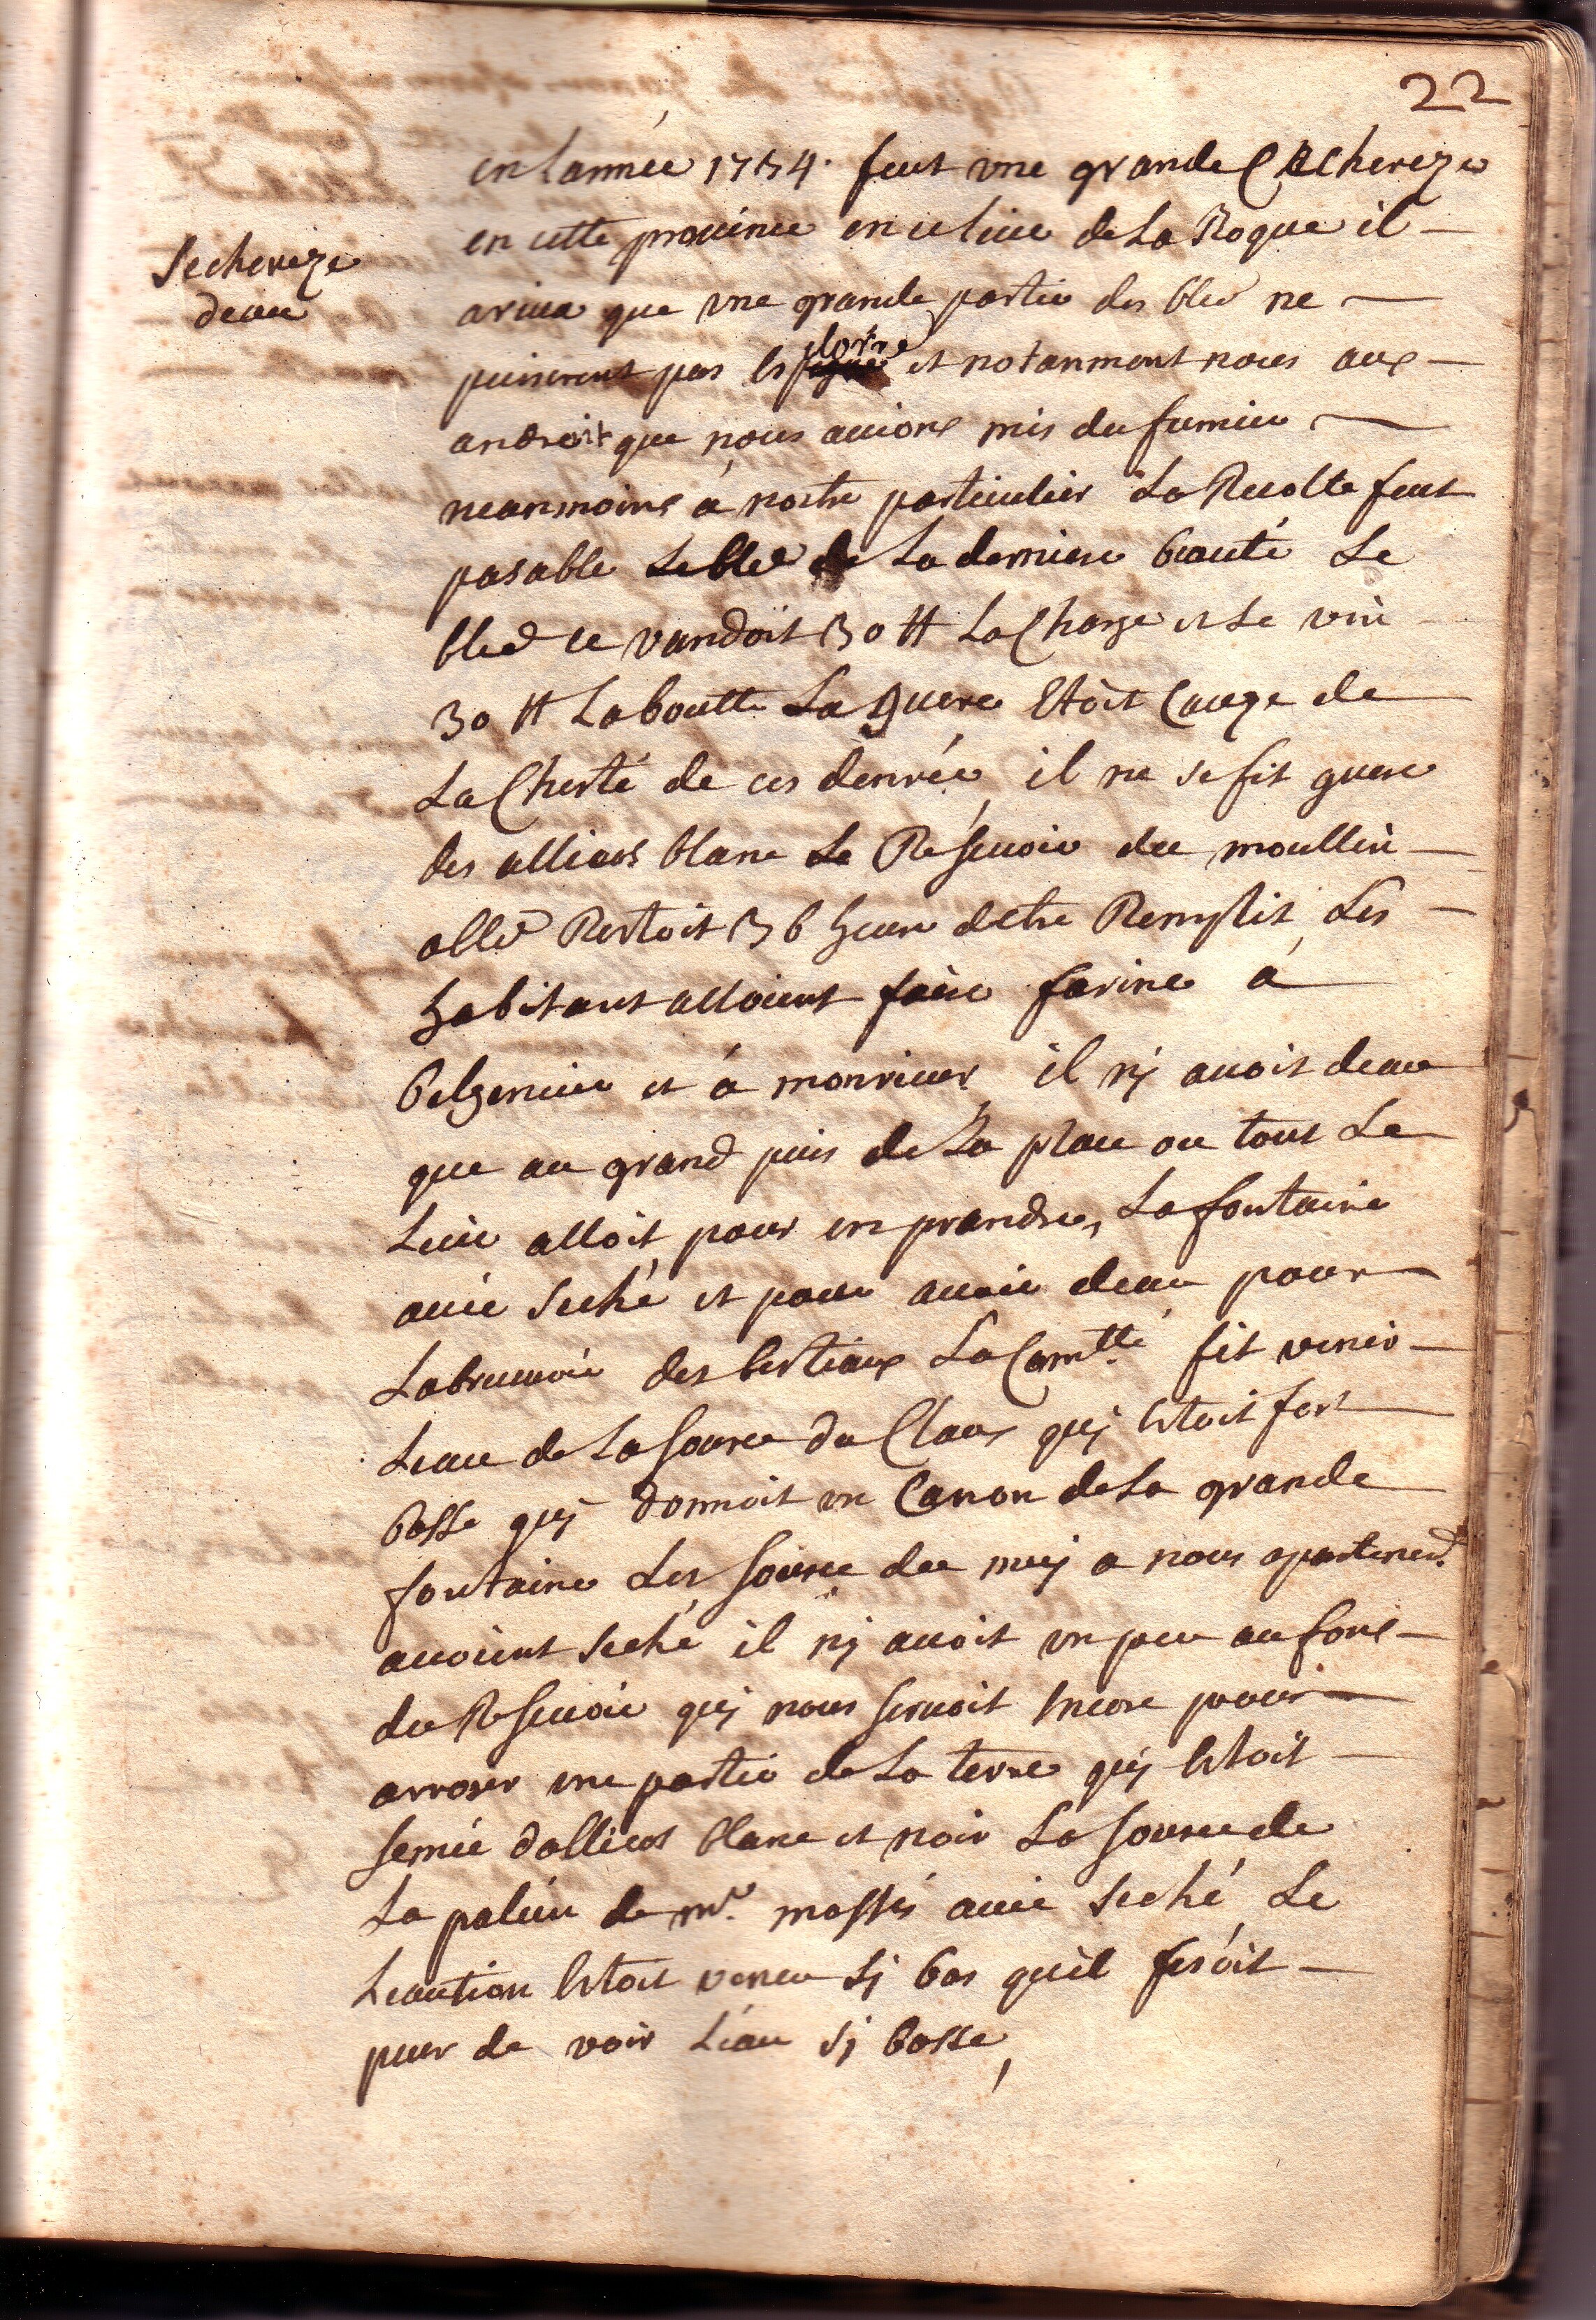 22
en Lannée 1734. feut une grande Cechereze
Sechereze
deau
en cette prouince en ce lieu de La Roque il
ariua que une grande partie des bled ne
puiserent pas et notanment nous aux
androit que nous auions mis du fumier
neanmoins a nostre particulier La Recolte feut
pasable Le bled de La derniere beauté Le
bled ce vandoit 30 ₶ La Charge et Le vin
30 ₶ La boutte La guere Etoit Cauze de
La Cherté de ces denrée, il ne se fit guere
des allicos blanc Le Reseruoir du moullin
alle Restoit 36 heure detre Remplit, Les
habitant alloient faire farine a
belgencier et a monrieux il nj auoit deau
que au grand puis de La place ou tout Le
Lieu alloit pour en prandre, La fontaine
auie seché et pour auoir deau pour
Labreuuoir des bestiaux La Comtté fit venir
Leau de La source du Claus quj Etoit fort
basse quj donnoit un Canon de La grande
fontaine Les source du muy a nous apartened.
auoient seché il nj auoit un peu au fons
du Reseruoir quj nous seruoit Encore pour
arroser une partie de La terre quj Etoit
semée dallicos blanc et noir La source de
La de mr. massés auie seché, Le
Leaution Etoit veneu sj bas quil fesoit
peur de voir Léau sj basse,